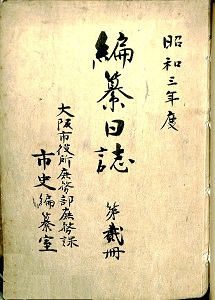 昭和三年度
編纂日誌
第貳冊
大阪市役所庶務部庶務課
市史編纂室